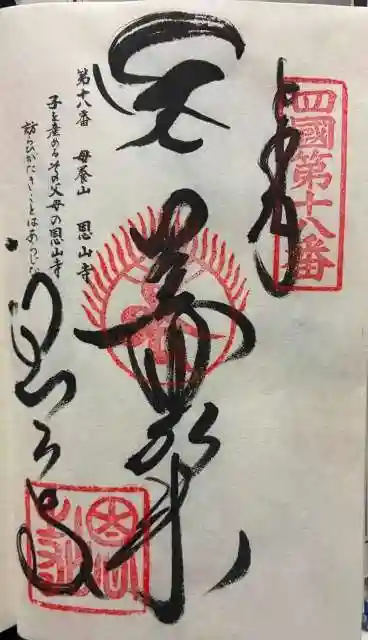 四國第十八番
奉納
薬師如来
恩山寺
第十八番 母養山 恩山寺
子を産める その父母の恩山寺
訪らひがたきことはあらじな